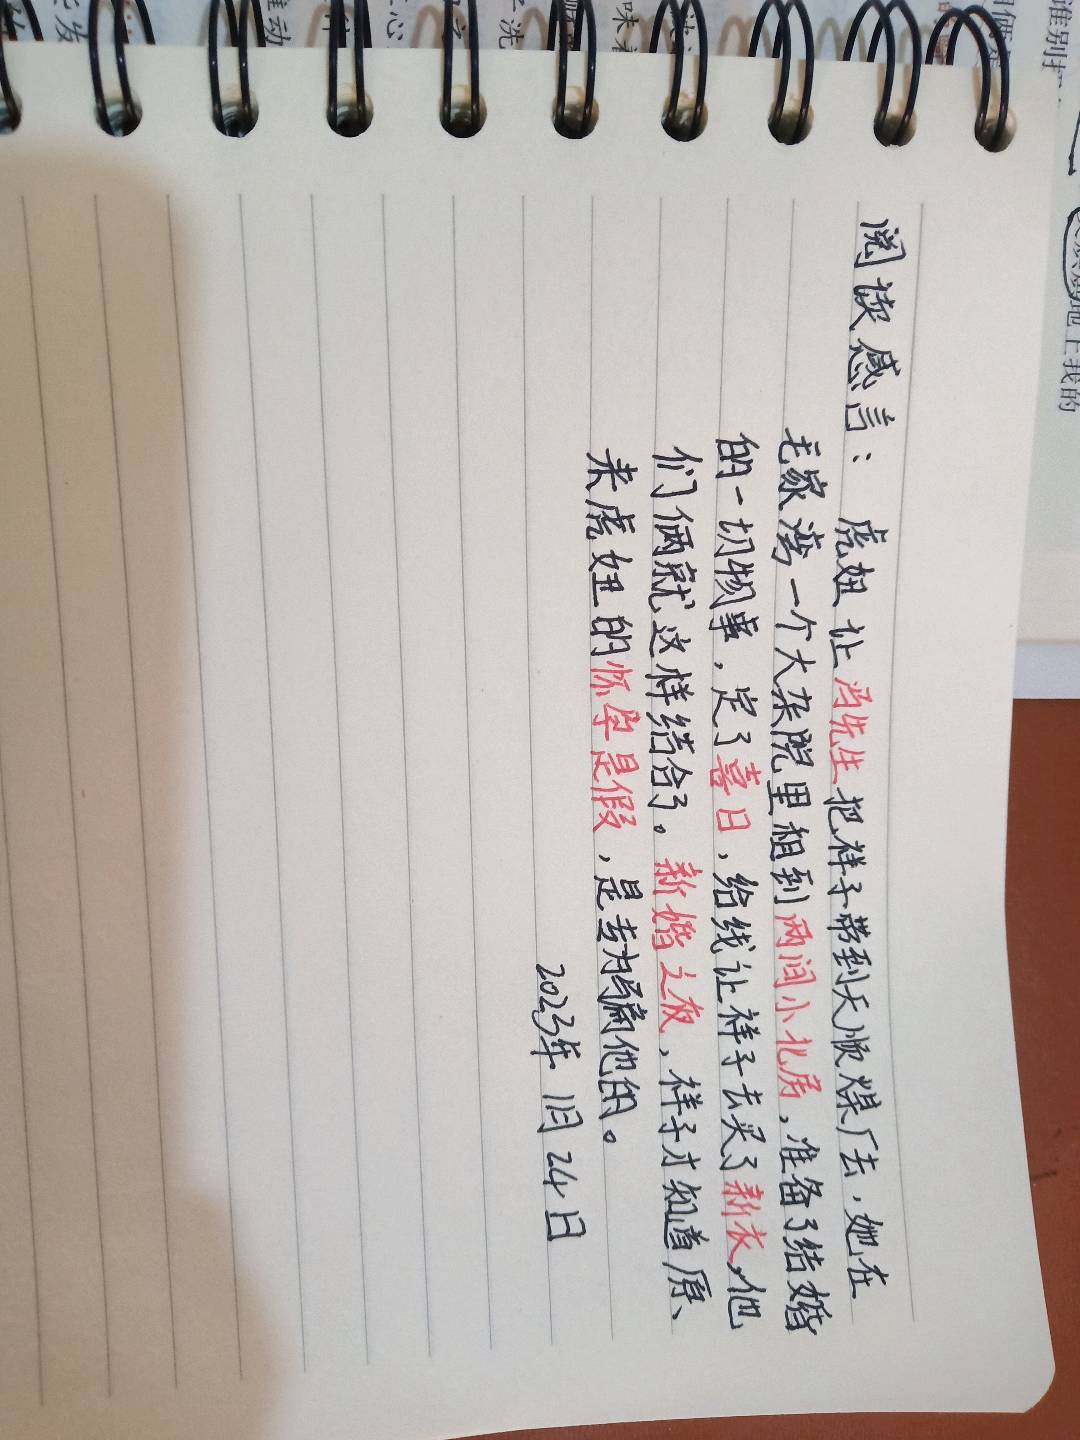 阅读感言：虎妞让冯先生把祥子带到天顺煤厂去，她在
毛家湾一个大杂院里租到两间小北房，准备了结婚
的一切物事，定了喜日，给线让祥子去买了新衣，他
们俩就这样结合了。新婚之夜，祥子才知道原、
来虎妞的怀孕是假，是专为骗他的。
2023年1月24日
谁别扌
地上我的